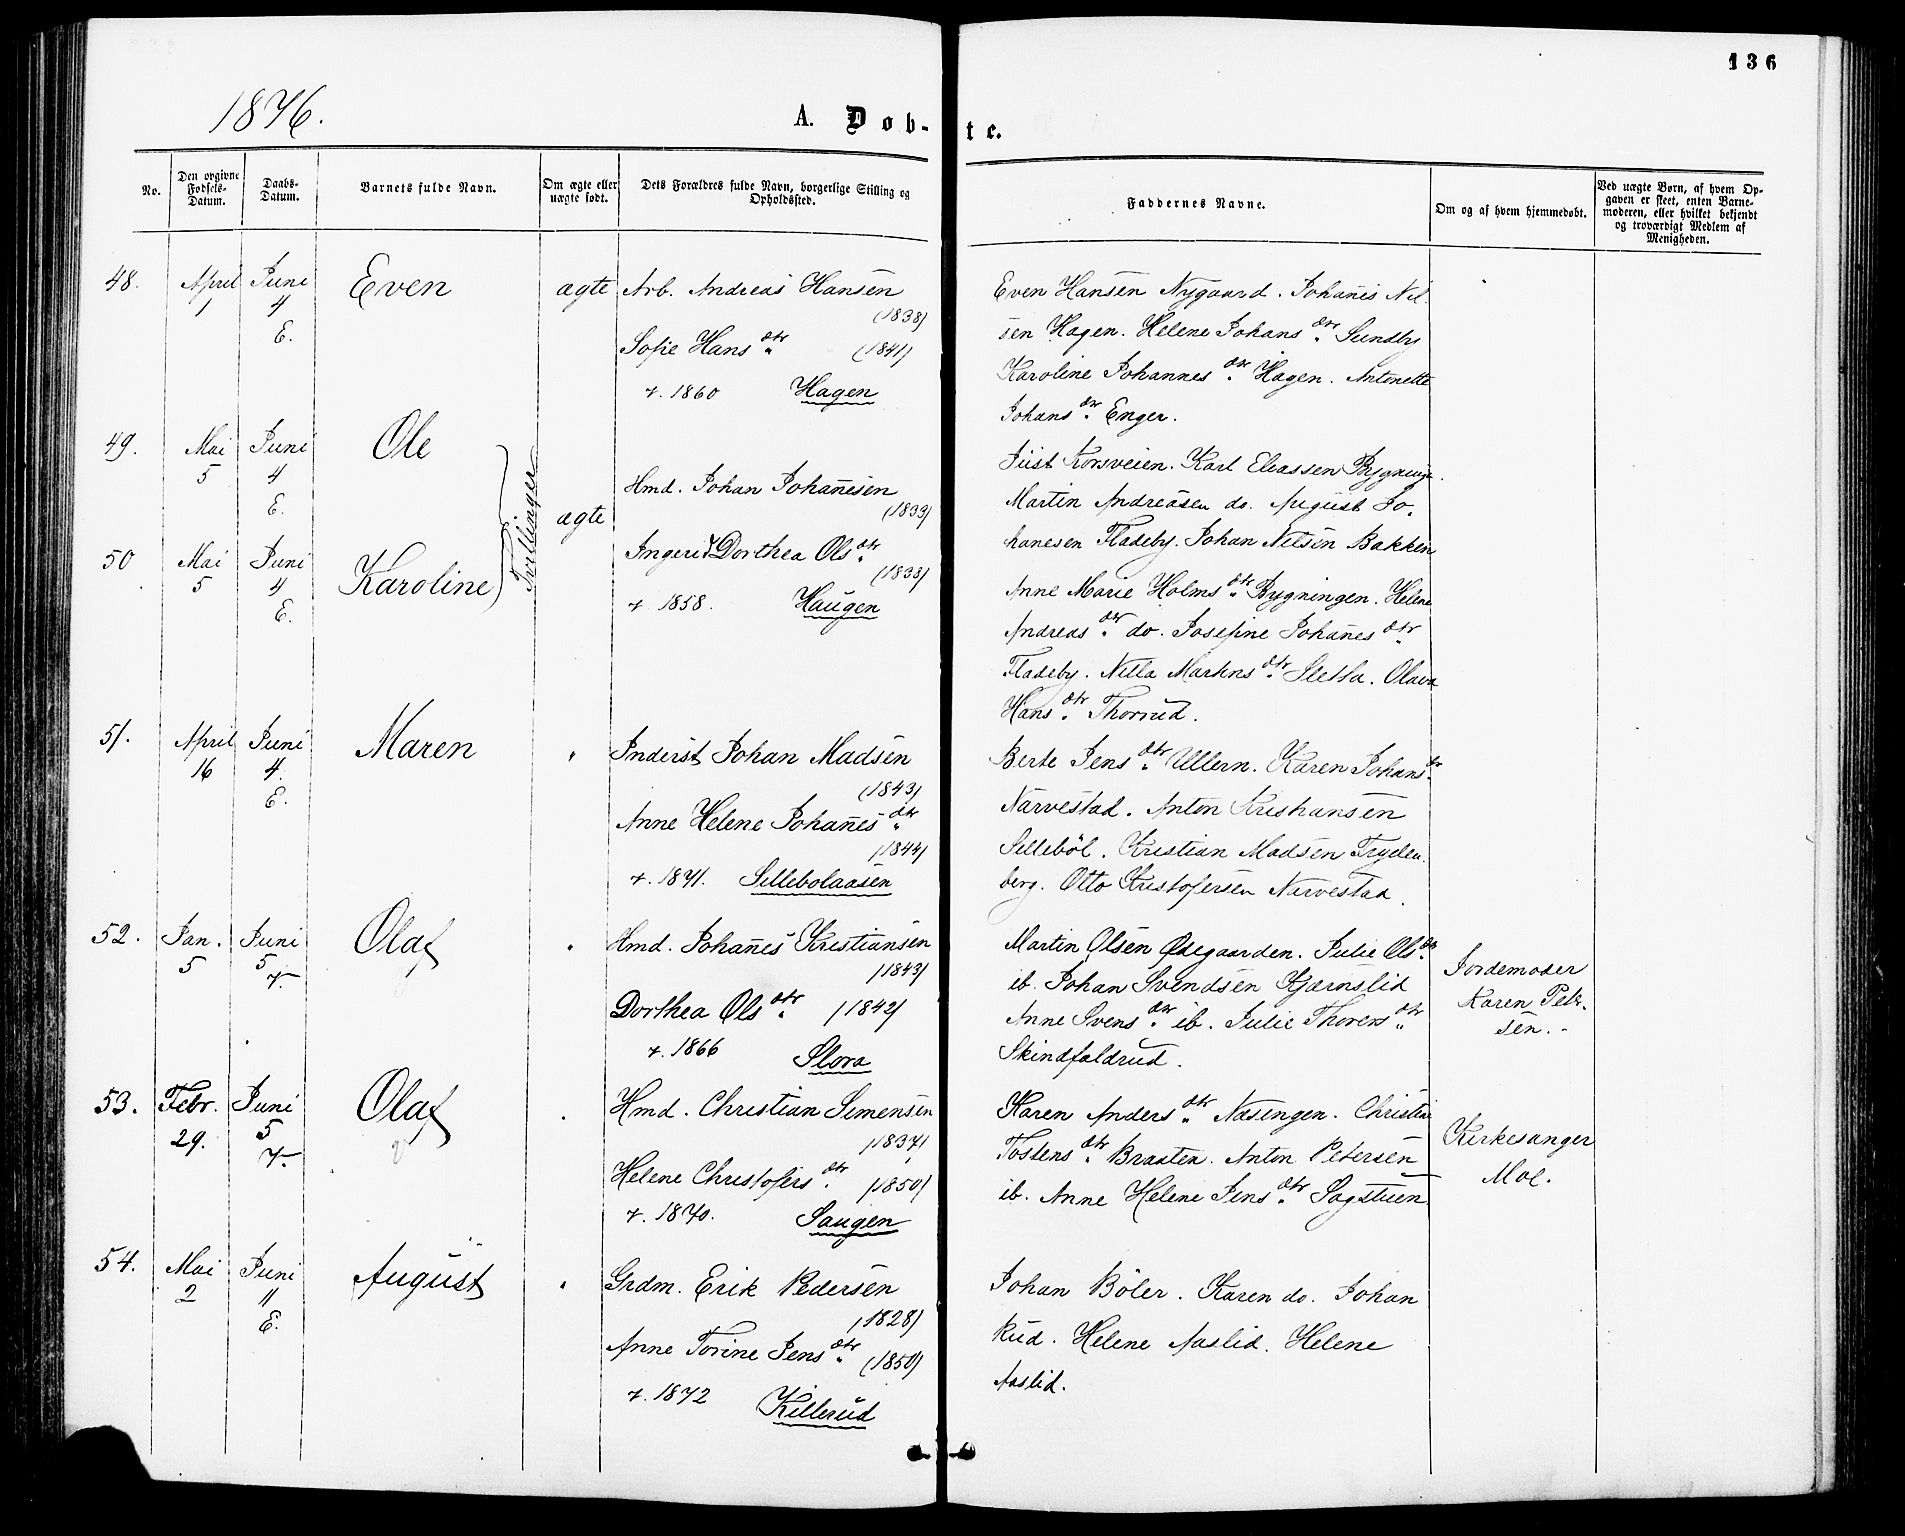 136
1876.
A. Døb-
te.
No.
Den opgivne Fødsels-Datum.
Daabs-Datum.
Barnets fulde Navn.
Om ægte eller uægte født.
Dets Forældres fulde Navn, borgerlige Stilling og Opholdssted.
Faddernes Navne.
Om og af hvem hjemmedøbt.
Ved uægte Børn, af hvem Op-
gaven er skeet, enten Barne-
moderen, eller hvilket bekjendt
og troværdigt Medlem af
Menigheden.
48. April 1 Juni 4 E. Even ægte
Arb. Andreas Hansen
(1838)
Sofie Hans dtr (1841)
v. 1860 Hagen
Even Hansen Nygaard. Johanes Nil
sen Hagen. Helene Johans dtr Sundby
Karoline Johannes dtr Hagen. Antonette
Johans dtr Enger.
49. Mai 5 Juni 4 E. Ole
Tvillinger
ægte
50 Mai 5 Juni 4 E. Karoline
Hmd. Johan Johanesen
(1833)
Ingerid Dorthea Ols dtr
(1838)
v. 1858. Haugen
Just Korsveien. Karl Eliassen Bygninge.
Martin Andreasen do. August Jo-
hanesen Fladeby. Johan Nilsen Bakken
Anne Marie Holms dtr Bygningen. Helene
Andreas dtr do. Josefine Johanes dtr
Fladeby. Nilla Martins dtr Sletta. Olava
Hans dtr Thorrud.
51. April 16 Juni 4. E. Maren "
Inderst Johan Madsen
(1843)
Anne Helene Johanes dtr
(1844)
v. 1871. Sillebolaasen
Berte Jens dtr Ullern. Karen Johans dtr
Narvestad. Anton Kristiansen
Sillebøl. Kristian Madsen Tryden
berg. Otto Kristofersen Narvestad.
52. Jan. 5 Juni 5 v. Olaf "
Hmd. Johanes Kristiansen
(1843)
Dorthea Ols dtr (1842)
v. 1866 Slora
Martin Olsen Ødegaarden. Julie Ols dtr
ib. Johan Svendsen Kjærnslid
Anne Svens dtr ib. Julie Thorers dtr
Skindfaldrud.
Jordemoder
Karen Peter-
sen.
53. Febr. 29. Juni 5 v. Olaf "
Hmd. Christian Simensen
(1837)
Helene Christofers dtr (1850)
v. 1870. Saugen
Karen Anders dtr Næsengen. Christin
Tostens dtr Braaten. Anton Petersen
ib. Anne Helene Jens dtr Sagstuen
Kirkesanger
Moe.
54. Mai 2 Juni 11 E. August "
Grdm. Erik Pedersen
(1828)
Anne Torine Jens dtr (1850)
v. 1872 Killerud
Johan Bøler. Karen do. Johan
Rud. Helene Aaslid. Helene
Aaslid.